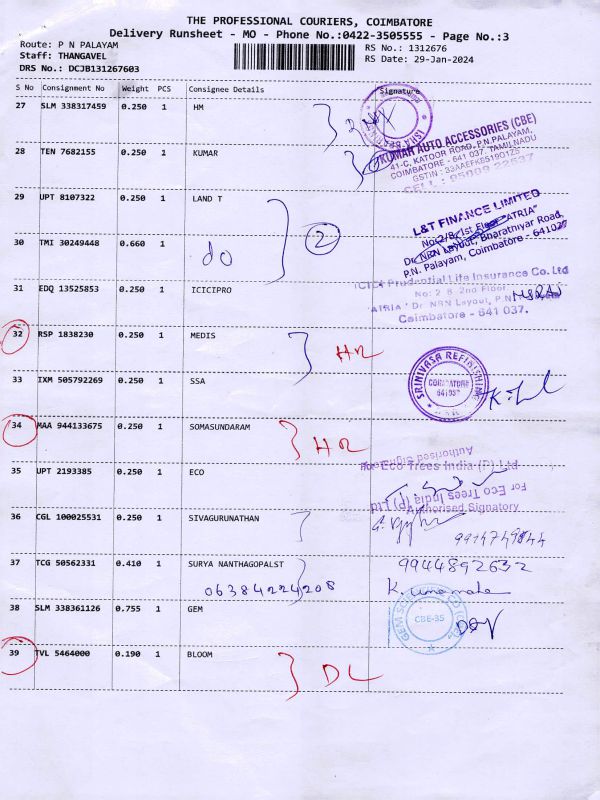 THE PROFESSIONAL COURIERS, COIMBATORE
Delivery Runsheet - MO - Phone No.:0422-3505555 - Page No.:3
Route: P N PALAYAM
RS No.: 1312676
Staff: THANGAVEL
RS Date: 29-Jan-2024
DRS No.: DCJB131267603
S No Consignment No Weight PCS Consignee Details Signature
27 SLM 338317459 0.250 1 HM
28 TEN 7682155 0.250 1 KUMAR
KUMAR AUTO ACCESSORIES (CBE)
41-C, KATOOR ROAD, P.N.PALAYAM,
COIMBATORE - 641 037. TAMILNADU
29 UPT 8107322 0.250 1 LAND T
L&T FINANCE LIMITED
No:2/8, 1st Floor "ATRIA"
Dr. NRN Layout, Bharathiyar Road,
P.N. Palayam, Coimbatore - 641037
2
30 TMI 30249448 0.660 1
do
31 EDQ 13525853 0.250 1 ICICIPRO
ICICI Prudential Life Insurance Co. Ltd
No: 2 8 2nd Floor
"ATRIA" Dr NRN Layout, P.N.
Coimbatore - 641 037.
32 RSP 1838230 0.250 1 MEDIS
HR
33 IXM 505792269 0.250 1 SSA
SRINIVASA REFINISHING
COIMBATORE
641037
34 MAA 944133675 0.250 1 SOMASUNDARAM
HR
Authorised Signatory
35 UPT 2193385 0.250 1 ECO
For Eco Trees India (P) Ltd
For Eco Trees India (P) Ltd
Authorised Signatory
36 CGL 100025531 0.250 1 SIVAGURUNATHAN
37 TCG 50562331 0.410 1 SURYA NANTHAGOPALST
06384224208
9944892632
38 SLM 338361126 0.755 1 GEM
CBE-35
39 TVL 5464000 0.190 1 BLOOM
DL